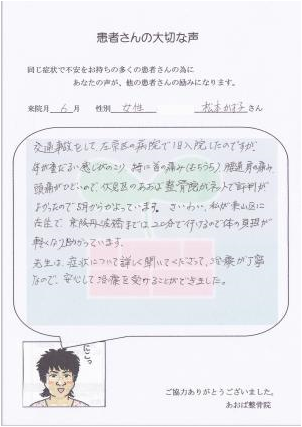 患者さんの大切な声
同じ症状で不安をお持ちの多くの患者さんの為に
あなたの声が、他の患者さんの励みになります。
来院月 6 月 性別 女性 さん
交通事故をして左京区の病院で1日入院したのですが
体が重だるい感じがのこり 特に首の痛み(むちうち)、腰の痛み
頭痛がひどいので、伏見区のあおば整骨院が名人で評判が
よかったので5月からかよっています。さいわい、私が東山区に
在住で、京阪丹波橋までは20分で行けるので体の負担が
軽くなり助かっています。
先生は、症状について詳しく聞いてくださって、治療が丁寧
なので、安心して治療を受けることができました。
にこっ
ご協力ありがとうございました。
あおば整骨院